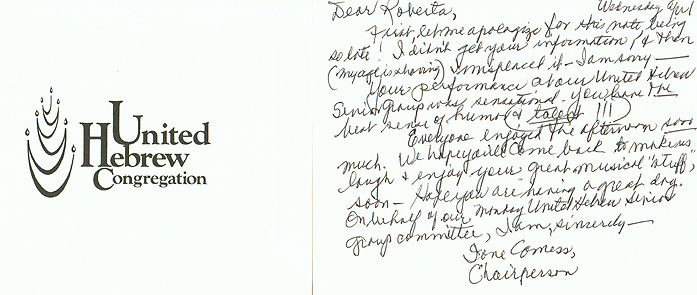 United
Hebrew
Congregation
Wednesday April
Dear Roberta,
First, let me apologize for this note being
so late! I didn't get your information, & then
(my age is showing) I misplaced it - I am sorry —
Your performance at our United Hebrew
Senior group was sensational. You have the
best sense of humor (& talent) !!!
Everyone enjoyed the afternoon sooo
much. We hope you'll come back to make us
laugh & enjoy your great musical "stuff",
soon - Hope you are having a great day.
On behalf of our Monday United Hebrew Senior
group committee, I am, sincerely —
Ione Comess,
Chairperson